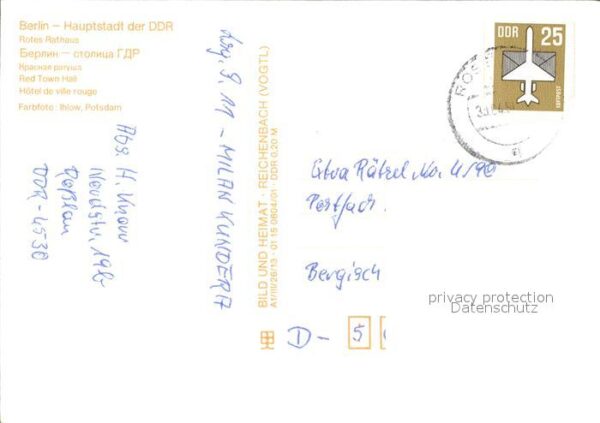 Berlin – Hauptstadt der DDR
Rotes Rathaus
Берлин – столица ГДР
Красная ратуша
Red Town Hall
Hôtel de ville rouge
Farbfoto: Ihlow, Potsdam
S. M – MILAN KUNDERA
Abs. H.
Nordstr. 19b
Roßlau
DDR – 4530
BILD UND HEIMAT · REICHENBACH (VOGTL)
A1/III/26/13 · 01 15 0604/01 · DDR 0,20 M
DDR 25
LUFTPOST
Extra Rätsel No. 4/90
Postfach
Bergisch
D – 5
privacy protection
Datenschutz